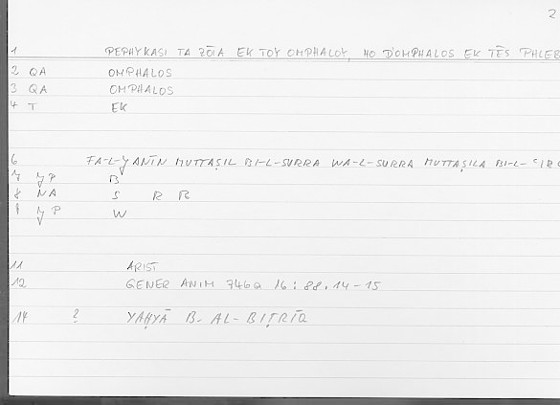 2
1 PEPHYKASI TA ZŌIA EK TOY OMPHALOY, HO D'OMPHALOS EK TĒS PHLEB
2 QA OMPHALOS
3 QA OMPHALOS
4 T EK
6 FA-L-ǦANĪN MUTTAṢIL BI-L-SURRA WA-L-SURRA MUTTAṢILA BI-L-ʿIRQ
7 ǦP B
8 NA S R R
9 ǦP W
11 ARIST
12 GENER ANIM 746a 16 : 88.14-15
14 ? YAḤYĀ B. AL-BIṬRĪQ